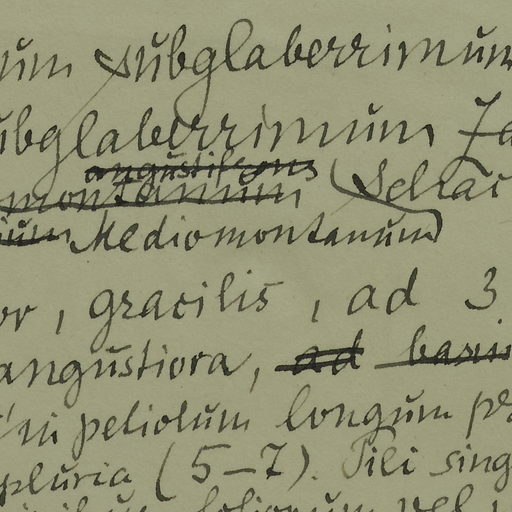 um subglaberrimum
ubglaberrimum Za
angustifrons
montanum (Selrac
ium Mediomontanum)
or, gracilis, ad 3
angustiora, ad basin
in petiolum longum pe
pluria (5-7). Pili sing
foliorum vel